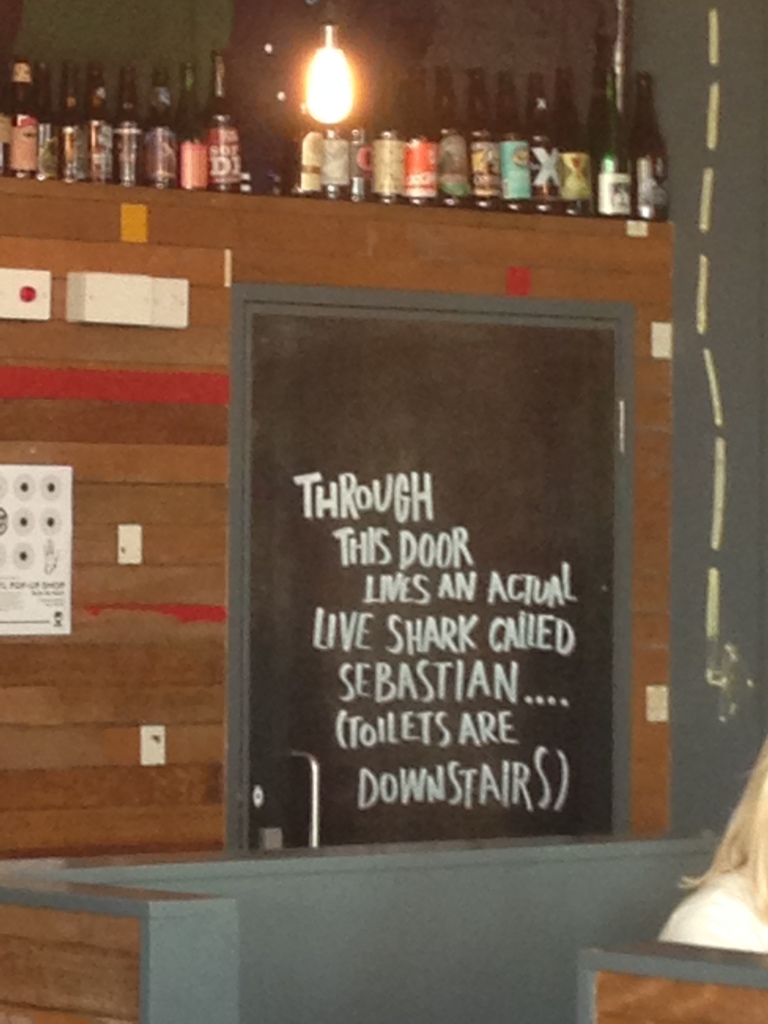 THROUGH
THIS DOOR
LIVES AN ACTUAL
LIVE SHARK CALLED
SEBASTIAN....
(TOILETS ARE
DOWNSTAIRS)